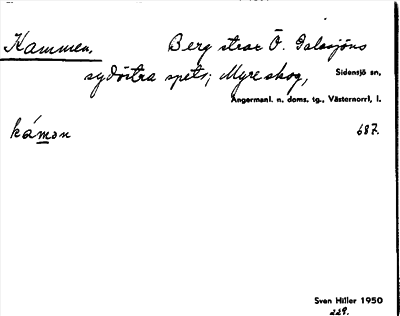 Kammen. Berg strax Ö. Galasjöns
sydöstra spets; Myreskog, Sidensjö sn,
Ångermanl. n. doms. tg., Västernorrl, l.
kámon 687.
Sven Hiller 1950
229.